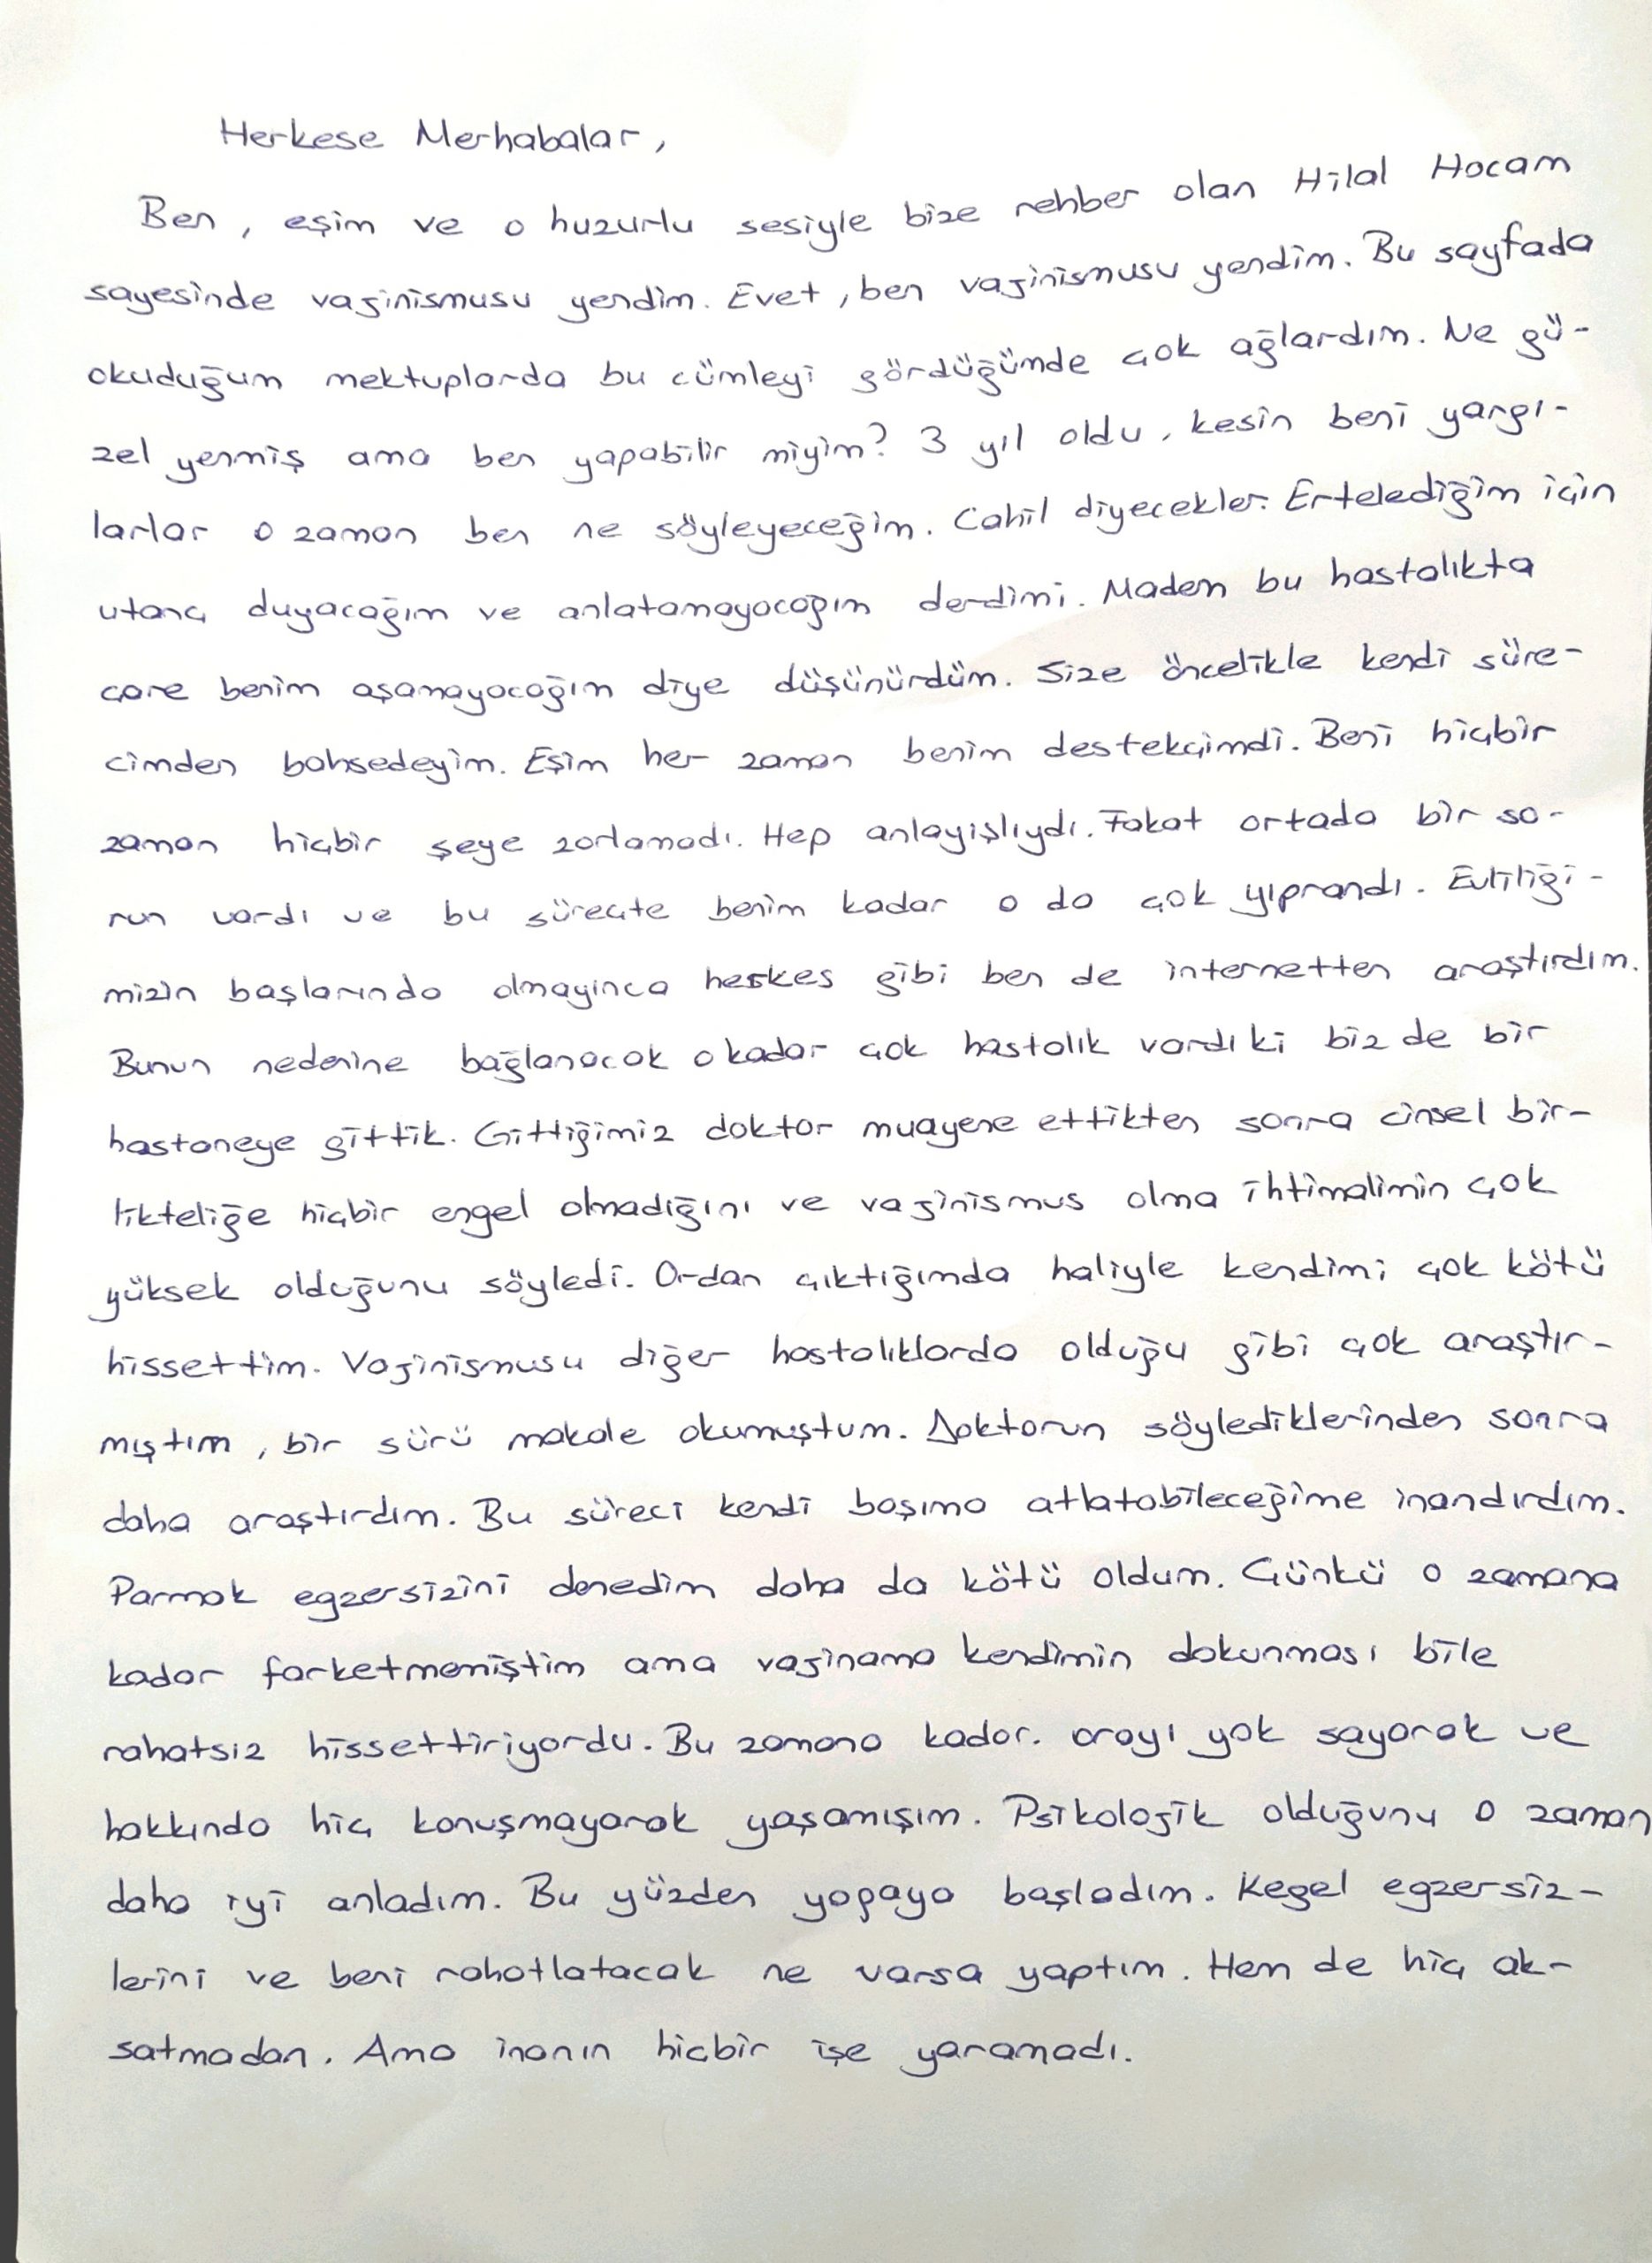 Herkese Merhabalar,
Ben, eşim ve o huzurlu sesiyle bize rehber olan Hilal Hocam
sayesinde vajinismusu yendim. Evet, ben vajinismusu yendim. Bu sayfada
okuduğum mektuplarda bu cümleyi gördüğümde çok ağlardım. Ne gü-
zel yenmiş ama ben yapabilir miyim? 3 yıl oldu, kesin beni yargı-
larlar o zaman ben ne söyleyeceğim. Cahil diyecekler. Ertelediğim için
utanç duyacağım ve anlatamayacağım derdimi. Madem bu hastalıkta
çare benim aşamayacağım diye düşünürdüm. Size öncelikle kendi süre-
cimden bahsedeyim. Eşim her zaman benim destekçimdi. Beni hiçbir
zaman hiçbir şeye zorlamadı. Hep anlayışlıydı. Fakat ortada bir so-
run vardı ve bu süreçte benim kadar o da çok yıprandı. Evliliği-
mizin başlarında olmayınca herkes gibi ben de internetten araştırdım.
Bunun nedenine bağlanacak o kadar çok hastalık vardı ki biz de bir
hastaneye gittik. Gittiğimiz doktor muayene ettikten sonra cinsel bir-
likteliğe hiçbir engel olmadığını ve vajinismus olma ihtimalimin çok
yüksek olduğunu söyledi. Ordan çıktığımda haliyle kendimi çok kötü
hissettim. Vajinismusu diğer hastalıklarda olduğu gibi çok araştır-
mıştım, bir sürü makale okumuştum. Doktorun söylediklerinden sonra
daha araştırdım. Bu süreci kendi başıma atlatabileceğime inandırdım.
Parmak egzersizini denedim daha da kötü oldum. Çünkü o zamana
kadar farketmemiştim ama vajinama kendimin dokunması bile
rahatsız hissettiriyordu. Bu zamana kadar. orayı yok sayarak ve
hakkında hiç konuşmayarak yaşamışım. Psikolojik olduğunu o zaman
daha iyi anladım. Bu yüzden yogaya başladım. Kegel egzersiz-
lerini ve beni rahatlatacak ne varsa yaptım. Hem de hiç ak-
satmadan. Ama inanın hiçbir işe yaramadı.